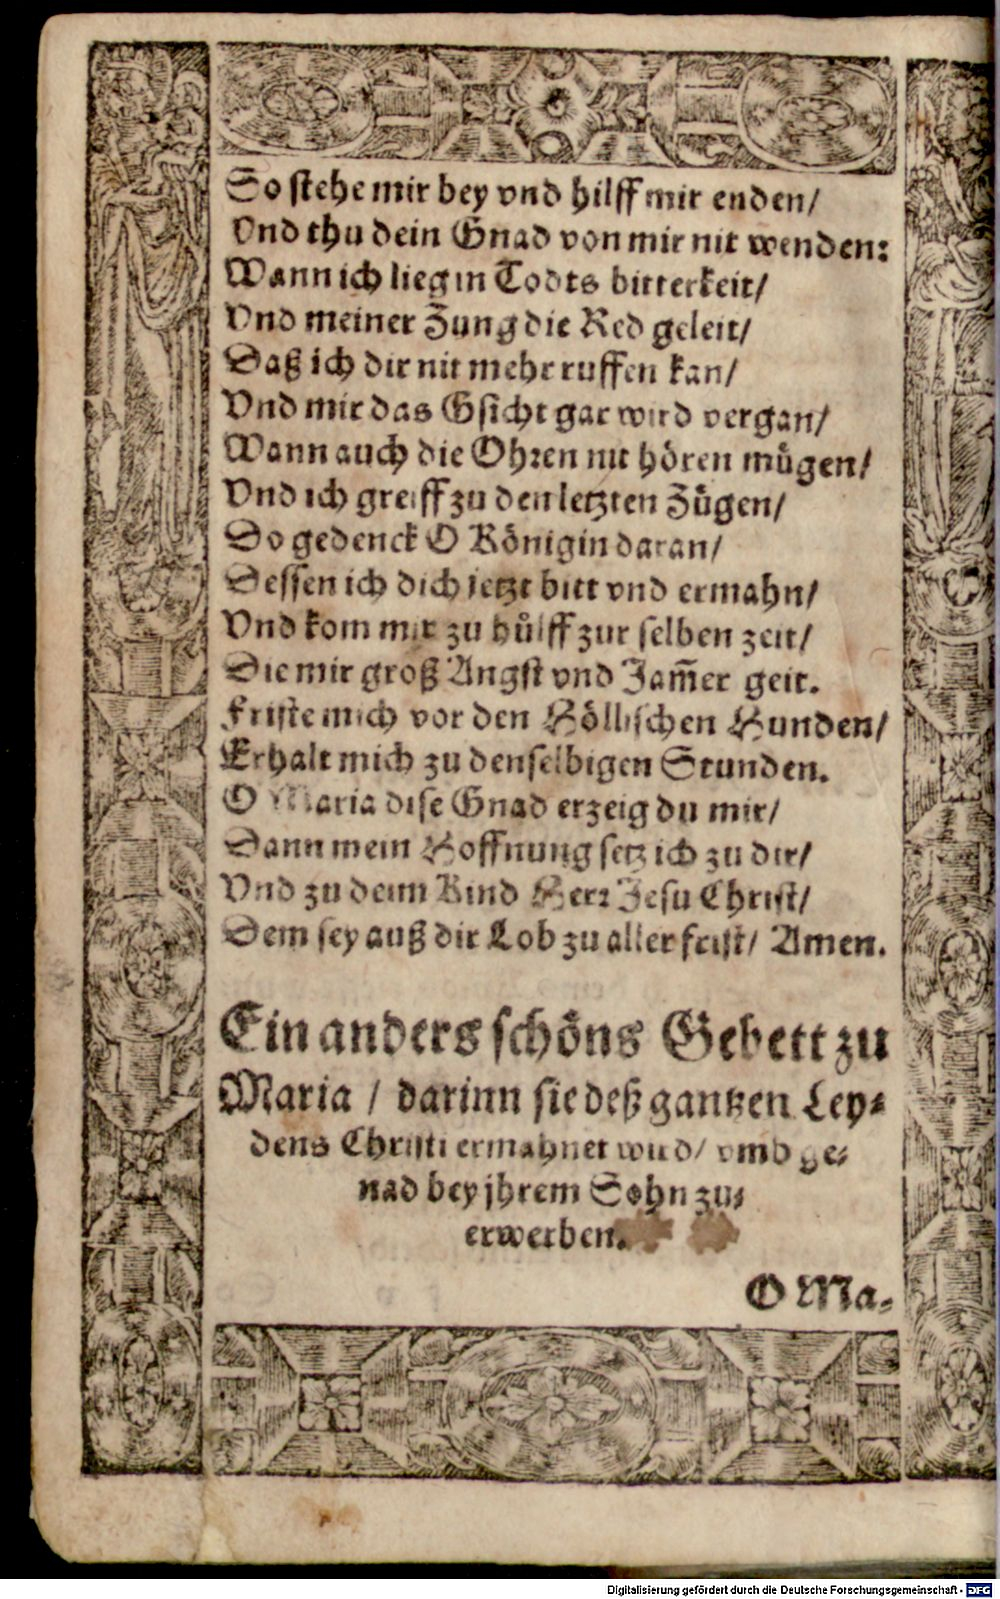 So stehe mir bey vnd hilff mir enden/
Vnd thu dein Gnad von mir nit wenden:
Wann ich lieg in Todts bitterkeit/
Vnd meiner Zung die Red geleit/
Daß ich dir nit mehr ruffen kan/
Vnd mir das Gsicht gar wird vergan/
Wann auch die Ohren nit hören mügen/
Vnd ich greiff zu den letzten Zügen/
So gedenck O Königin daran/
Dessen ich dich jetzt bitt vnd ermahn/
Vnd kom mir zu hůlff zur selben zeit/
Die mir groß Angst vnd Jam̄er geit.
Friste mich vor den Höllischen Hunden/
Erhalt mich zu denselbigen Stunden.
O Maria dise Gnad erzeig du mir/
Dann mein Hoffnung setz ich zu dir/
Vnd zu deim Kind Herr Jesu Christ/
Dem sey auß dir Lob zu aller frist/ Amen.
Ein anders schöns Gebett zu
Maria / darinn sie deß gantzen Ley-
dens Christi ermahnet wird/ vmb ge-
nad bey jhrem Sohn zu-
erwerben.
O Ma-
Digitalisierung gefördert durch die Deutsche Forschungsgemeinschaft - DFG